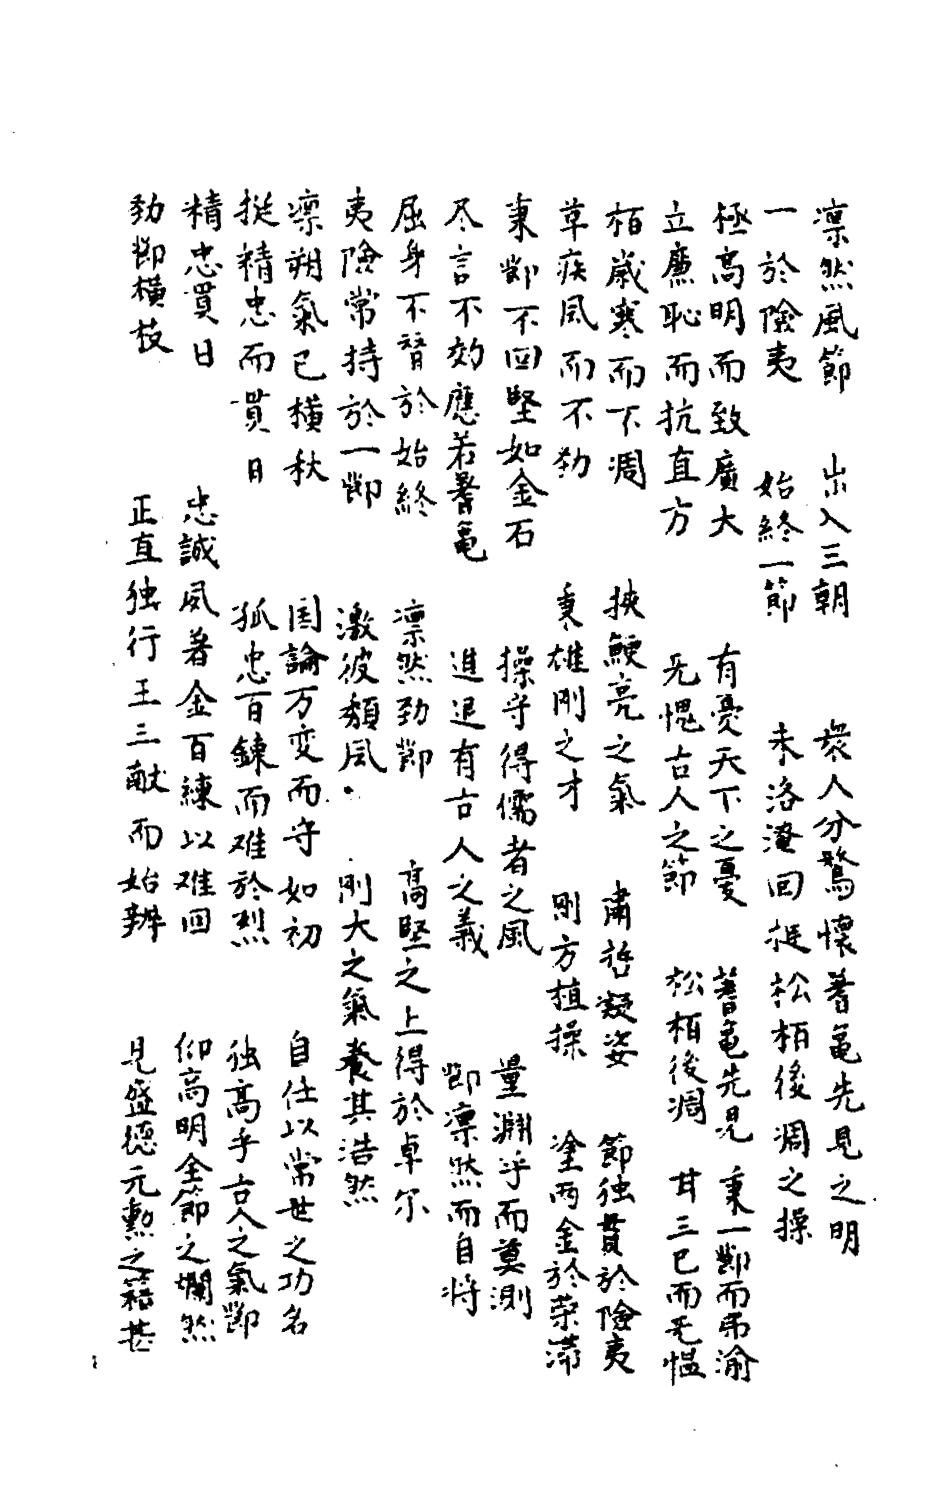 凛然風節　出入三朝　衆人分鶩懷蓍亀先見之明
一於險夷　始終一節　未洛淹回挺松栢後凋之操
極高明而致廣大　有憂天下之憂　蓍亀先見　秉一節而弗渝
立廉恥而抗直方　无愧古人之節　松栢後凋　甘三已而无愠
栢歳寒而下凋　挾鯁亮之氣　肅哲凝姿　節独貫於險夷
草疾风而不勁　秉雄剛之才　剛方植操　塗两金於荣滞
秉節不回堅如金石　操守得儒者之風　量淵乎而莫測
尽言不効應若蓍亀　進退有古人之義　節凛然而自将
屈身不替於始終　凛然劲節　高堅之上得於卓尔
夷險常持於一節　激彼頽风　剛大之氣養其浩然
凛朔氣已横秋　国論万変而守如初　自任以常世之功名
挺精忠而貫日　孤忠百鍊而难於烈　独高乎古人之氣節
精忠貫日　忠誠夙著金百練以难回　仰高明全節之爛然
劲節横枝　正直独行玉三献而始辨　見盛德元勲之籍甚